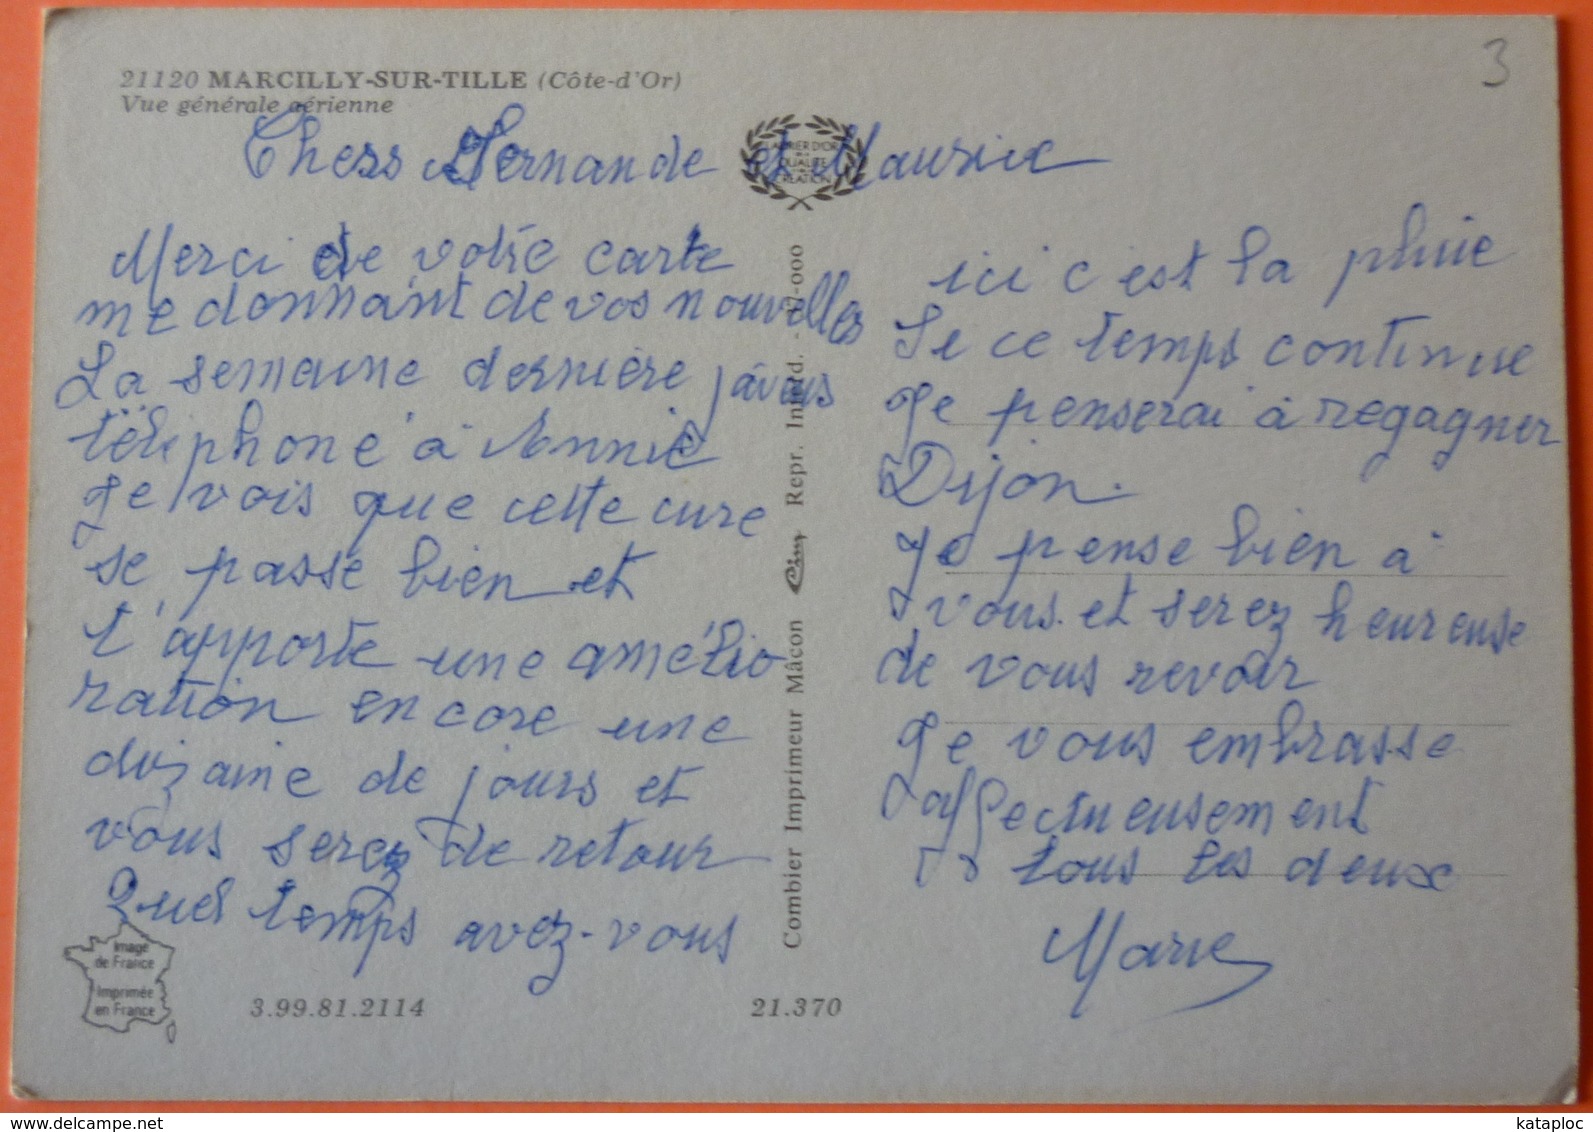 21120 MARCILLY-SUR-TILLE (Côte-d'Or)
Vue générale aérienne
3
Chers Fernande et Maurice
LAURIER D'OR
DE LA
QUALITÉ
CRÉATION
Merci de votre carte
me donnant de vos nouvelles
La semaine dernière j'avais
téléphoné à Annie
Je vois que cette cure
se passe bien et
t'apporte une amélio
ration encore une
dizaine de jours et
vous serez de retour
Quel temps avez-vous
ici c'est la pluie
Si ce temps continue
Je penserai à regagner
Dijon.
Je pense bien à
vous et serez heureuse
de vous revoir
Je vous embrasse
affectueusement
tous les deux
Marie
Combier Imprimeur Mâcon Cim Repr. Interd. - 37-000
Image
de France
Imprimée
en France
3.99.81.2114
21.370
kataploc